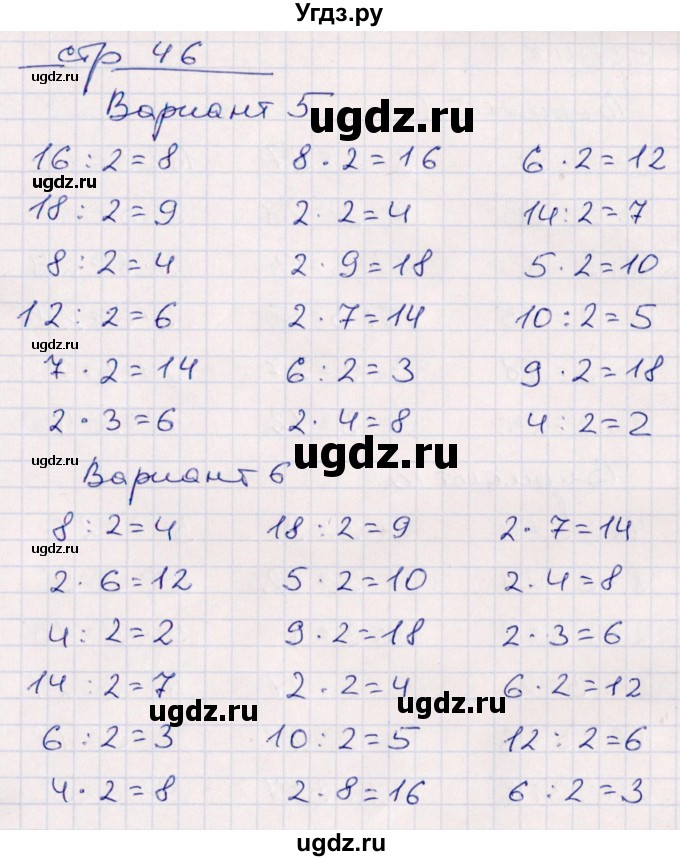 Угдз.ру
стр 46
ugdz.ru
Вариант 5
ugdz.ru
16 : 2 = 8 8 · 2 = 16 6 · 2 = 12
ugdz.ru
18 : 2 = 9 2 · 2 = 4 14 : 2 = 7
8 : 2 = 4 2 · 9 = 18 5 · 2 = 10
12 : 2 = 6 2 · 7 = 14 10 : 2 = 5
ugdz.ru
7 · 2 = 14 6 : 2 = 3 9 · 2 = 18
2 · 3 = 6 2 · 4 = 8 4 : 2 = 2
ugdz.ru
ugdz.ru
Вариант 6
8 : 2 = 4 18 : 2 = 9 2 · 7 = 14
ugdz.ru
2 · 6 = 12 5 · 2 = 10 2 · 4 = 8
4 : 2 = 2 9 · 2 = 18 2 · 3 = 6
14 : 2 = 7 2 · 2 = 4 6 · 2 = 12
ugdz.ru
ugdz.ru
6 : 2 = 3 10 : 2 = 5 12 : 2 = 6
4 · 2 = 8 2 · 8 = 16 6 : 2 = 3
ugdz.ru
ugdz.ru